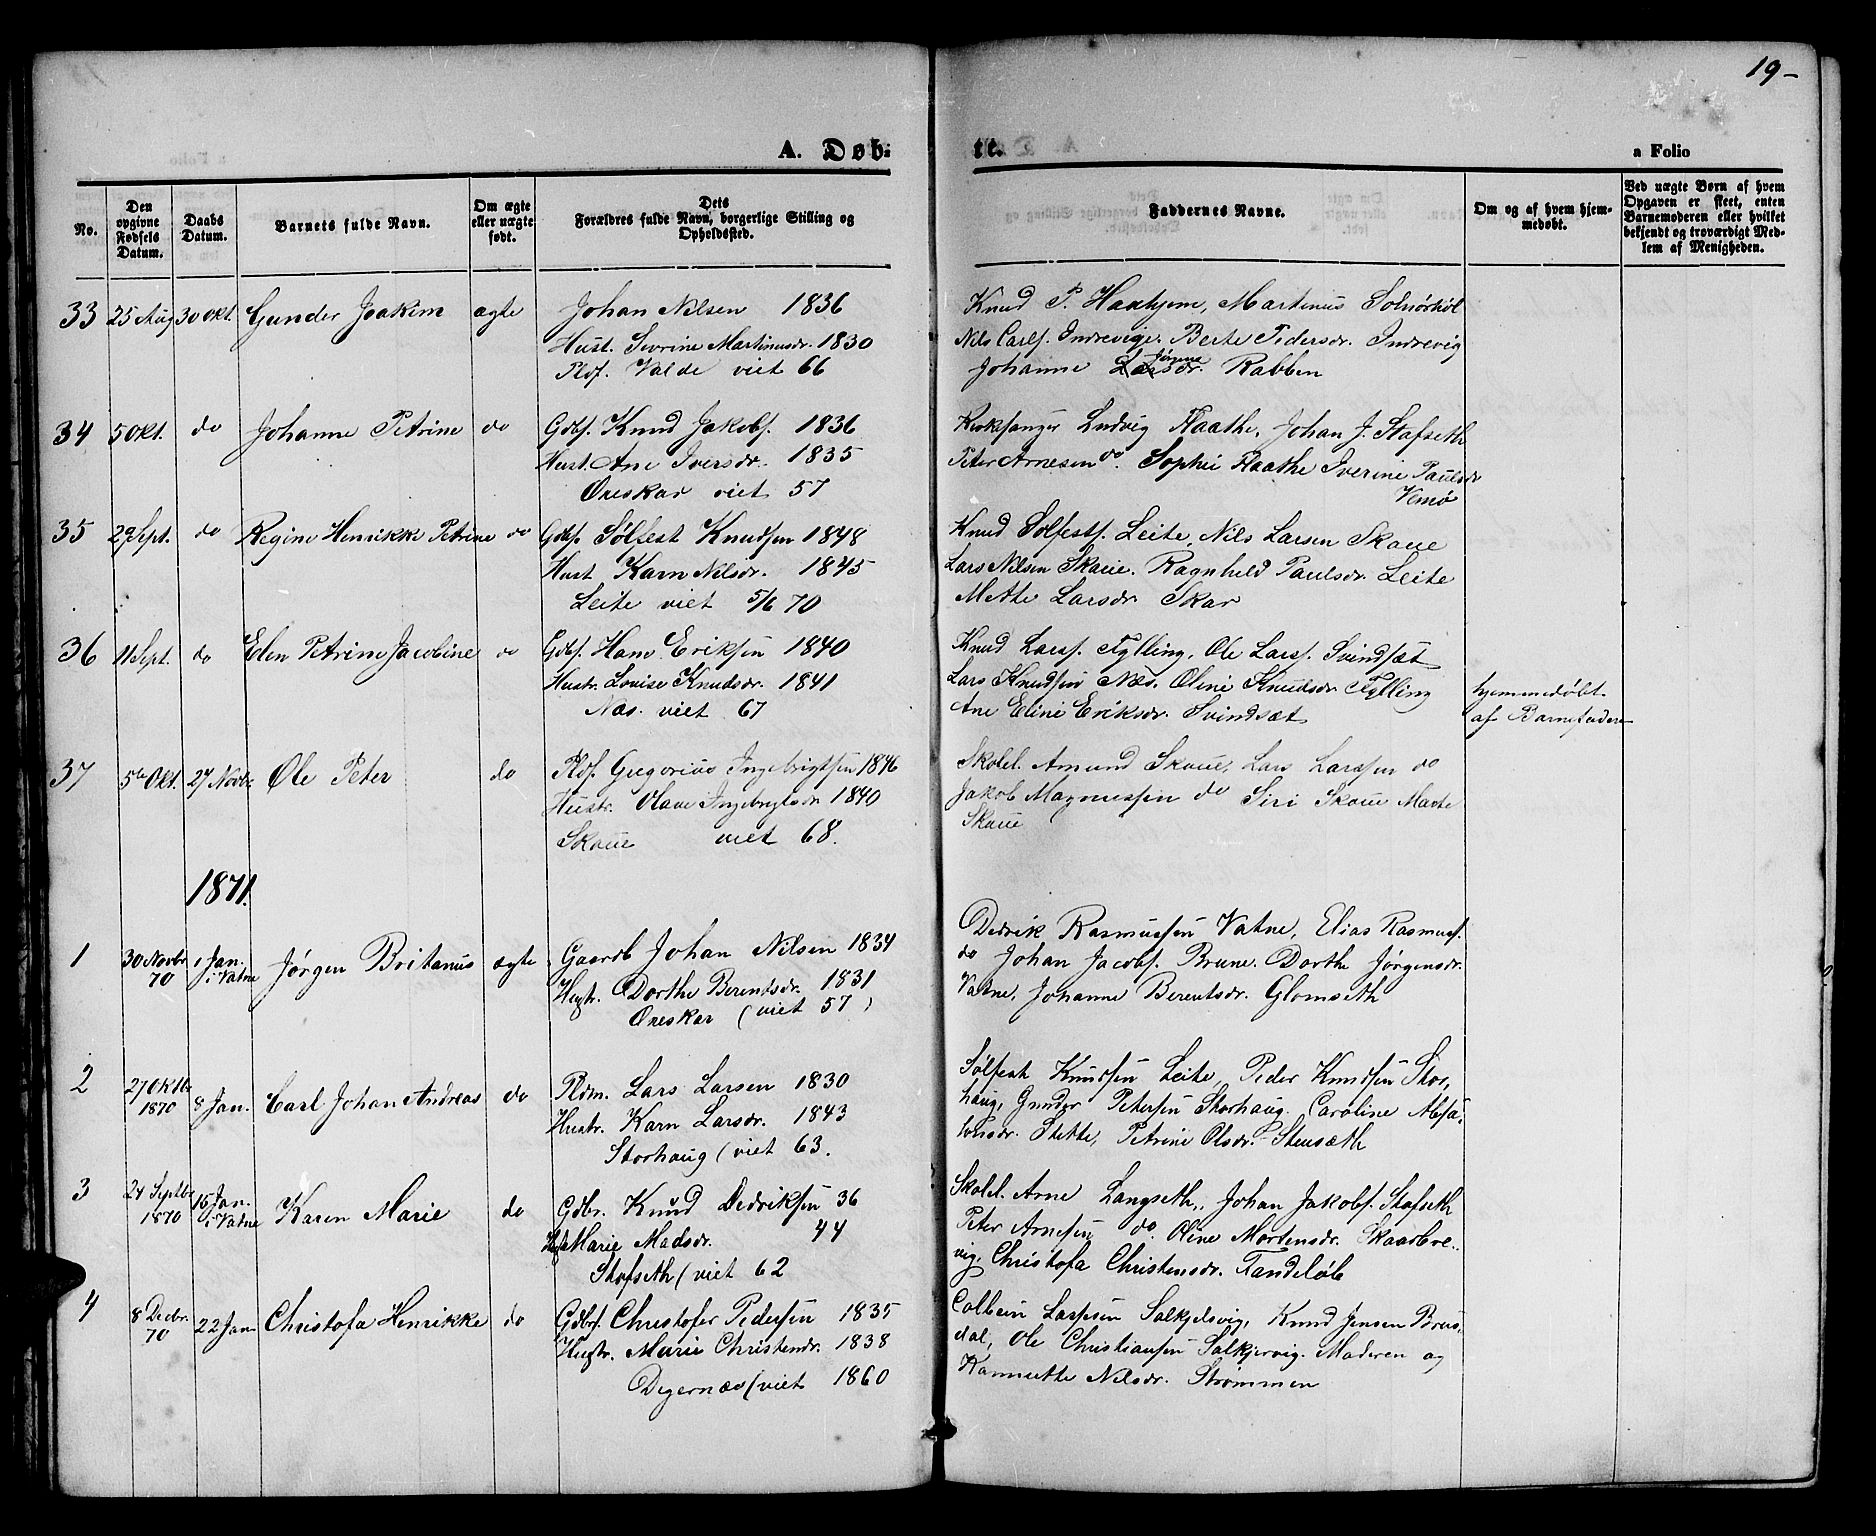 19-
A. Døb-
te.
a Folio
No.
Den opgivne Fødsels Datum.
Daabs Datum.
Barnets fulde Navn.
Om ægte eller uægte født.
Dets Forældres fulde Navn, borgerlige Stilling og Opholdssted.
Faddernes Navne.
Om og af hvem hjemmedøbt.
Ved uægte Børn af hvem Opgaven er skeet, enten Barnemoderen eller hvilket bekjendt og troværdigt Medlem af Menigheden.
33 25 Aug 30 Okt. Gunder Joakim ægte Johan Nilsen 1836
Hust. Sivrine Martinusdr. 1830
Pldf. Valde viet 66
Knud P. Haahjem, Martinus Solnørkøl
Nils Carlf. Indrevige. Berte Pedersdr. Indrevig
Johanne Jónne dr. Rabben
34 5 Okt. do Johanne Petrine do Gdbf. Knud Jakobf. 1836
Hust. Ane Iversdr. 1835
Øreskar viet 57
Kirkesanger Ludvig Flaathe, Johan J. Stafseth
Peter Arnesen do. Sophie Flaathe Iverine Paulsdr
Vemø
35 29 Sept. do Regine Henrikke Petrine do Gdbf. Sølfest Knudsen 1848
Hust Karn Nilsdr. 1845
Leite viet 5/6 70
Knud Solfestf. Leite, Nils Larsen Skaue
Lars Nilsen Skaue. Ragnhild Paulsdr. Leite
Mette Larsdr Skar
36 11 Sept. do Elen Petrine Jacobine do Gdbf. Hans Eriksen 1840
Hustr. Lovise Knudsdr. 1841
Næs. viet 67
Knud Larsf. Fylling, Ole Larsf. Svindsæt
Lars Knudsen Næs. Oline Knudsdr Fylling
Ane Eline Eriksdr. Svindsæt
hjemmedøbt
af Barnefaderen
37 5te Okt. 27 Novbr. Ole Peter do Pldf. Gregorius Ingebrigtsen 1846
Hustr. Olave Ingebrigtsdr 1840
Skaue viet 68.
Skolel. Amund Skaue, Lars Larssen do
Jakob Magnussen do Siri Skaue Marte
Skaue
1871.
1 30 Novbr 70 1 Jan. i Vatne Jørgen Britanus ægte Gaardb Johan Nilsen 1834
Hustr. Dorthe Berentsdr. 1831
Øreskar (viet 57)
Dedrik Rasmussen Vatne, Elias Rasmusf.
do Johan Jacobf. Brune. Dorthe Jørgensdr.
Vatne, Johanne Berentsdr. Glomseth
2 27 Oktbr 1870 8 Jan. Carl Johan Andreas do Pldm. Lars Larsen 1830
Hustr. Karn Larsdr. 1843
Storhaug (viet 63.
Sølfest Knudsen Leite, Peder Knudsen Stor,
haug, Gunder Petersen Storhaug. Caroline Absa,
lonsdr. Stette, Petrine Olsdr. Stensæth
3 24 Septbr 1870 15 Jan. i Vatne Karen Marie do Gdbr. Knud Dedriksen 36
Hust Marie Madsdr. 44
Stafseth (viet 62
Skolel. Arne Langseth, Johan Jakobf. Stafseth
Peter Arnesen do. Oline Mortensdr. Skaarbre,
vig, Christofa Christensdr. Tandeløb
4 8 Decbr. 70 22 Jan Christofa Henrikke do Gdbf. Christofer Pedersen 1835
Hustr. Marie Christendr. 1838
Degernæs (viet 1860
Colbein Larssen Salkjelsvig, Knud Jensen Brus,
dal, Ole Christiansen Salkjersvig. Moderen og
Hannette Nilsdr. Strømmen